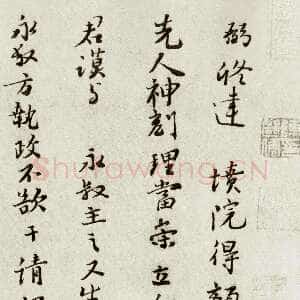 修建 墳院得額
先人神刻理當崇立
君謨与 永叔主之又
永叔方執政不欲干請
Shufawang.CN